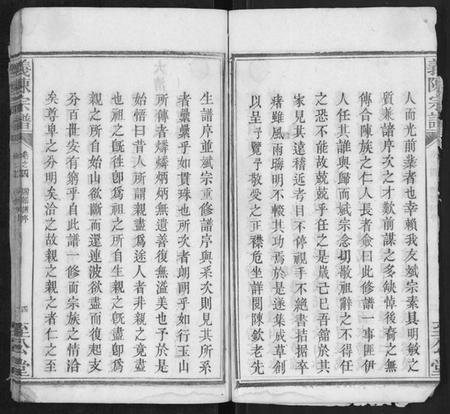 義陳宗譜
人而光前業者也幸賴我友斌宗素具明敏之
質兼譜序次之才歎前謀之多缺悼後裔之無
傳合陳族之仁人長者僉曰此修譜一事匪伊
人任其誰與歸而斌宗念切敬祖辭之不得任
之恐不能故兢兢乎任之是歲己巳吾館於其
家見其遠稽近考目不停視手不絶書拮据卒
瘏雖風雨晦明不輟其功焉於是遂集成草創
以呈予覽予敬受之正襟危坐詳閱陳欽老先
至公堂
生譜序並斌宗重修譜序與釆次則見其所系
者纍纍乎如貫珠也所次者朗朗乎如行玉山
所傳者炳炳麟麟無遺善復無溢美也予於是
始悟曰昔人所謂親盡爲途人者非親之竟盡
也祖之旣往卽爲祖之所自生親之旣盡卽爲
親之所自始山欲斷而還連波欲盡而復起支
分百世安有窮乎自此譜一修而宗族之情洽
矣尊卑之分明矣治之故親之親之者仁之至
義陳宗譜
卷之四
四
至公堂